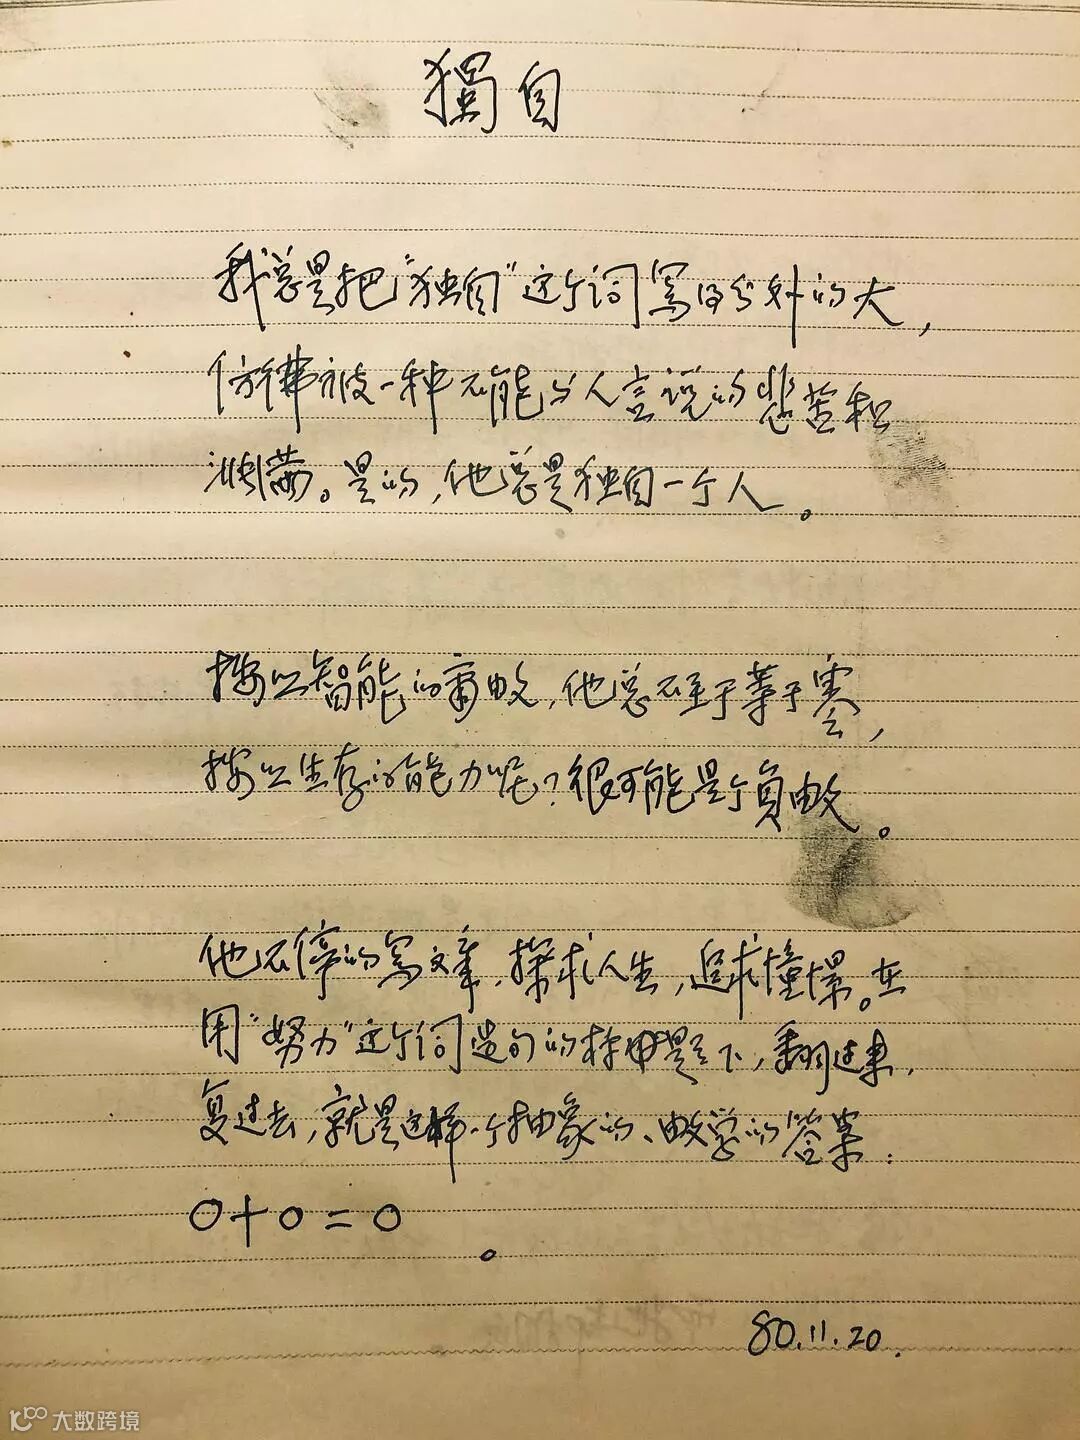 獨自
我总是把“独自”这个词写得分外的大，
仿彿被一种不能与人言说的悲苦和
渊。是的，他总是独自一个人。
按以智能的商数，他总不至于等于零，
按以生存的能力呢？很可能是个负数。
他不停的写文章，探求人生，追求憧憬。在
用“努力”这个词造句的标题下，翻过来，
复过去，就是这样一个抽象的、数学的答案：
0+0=0。
80.11.20.
大数跨境